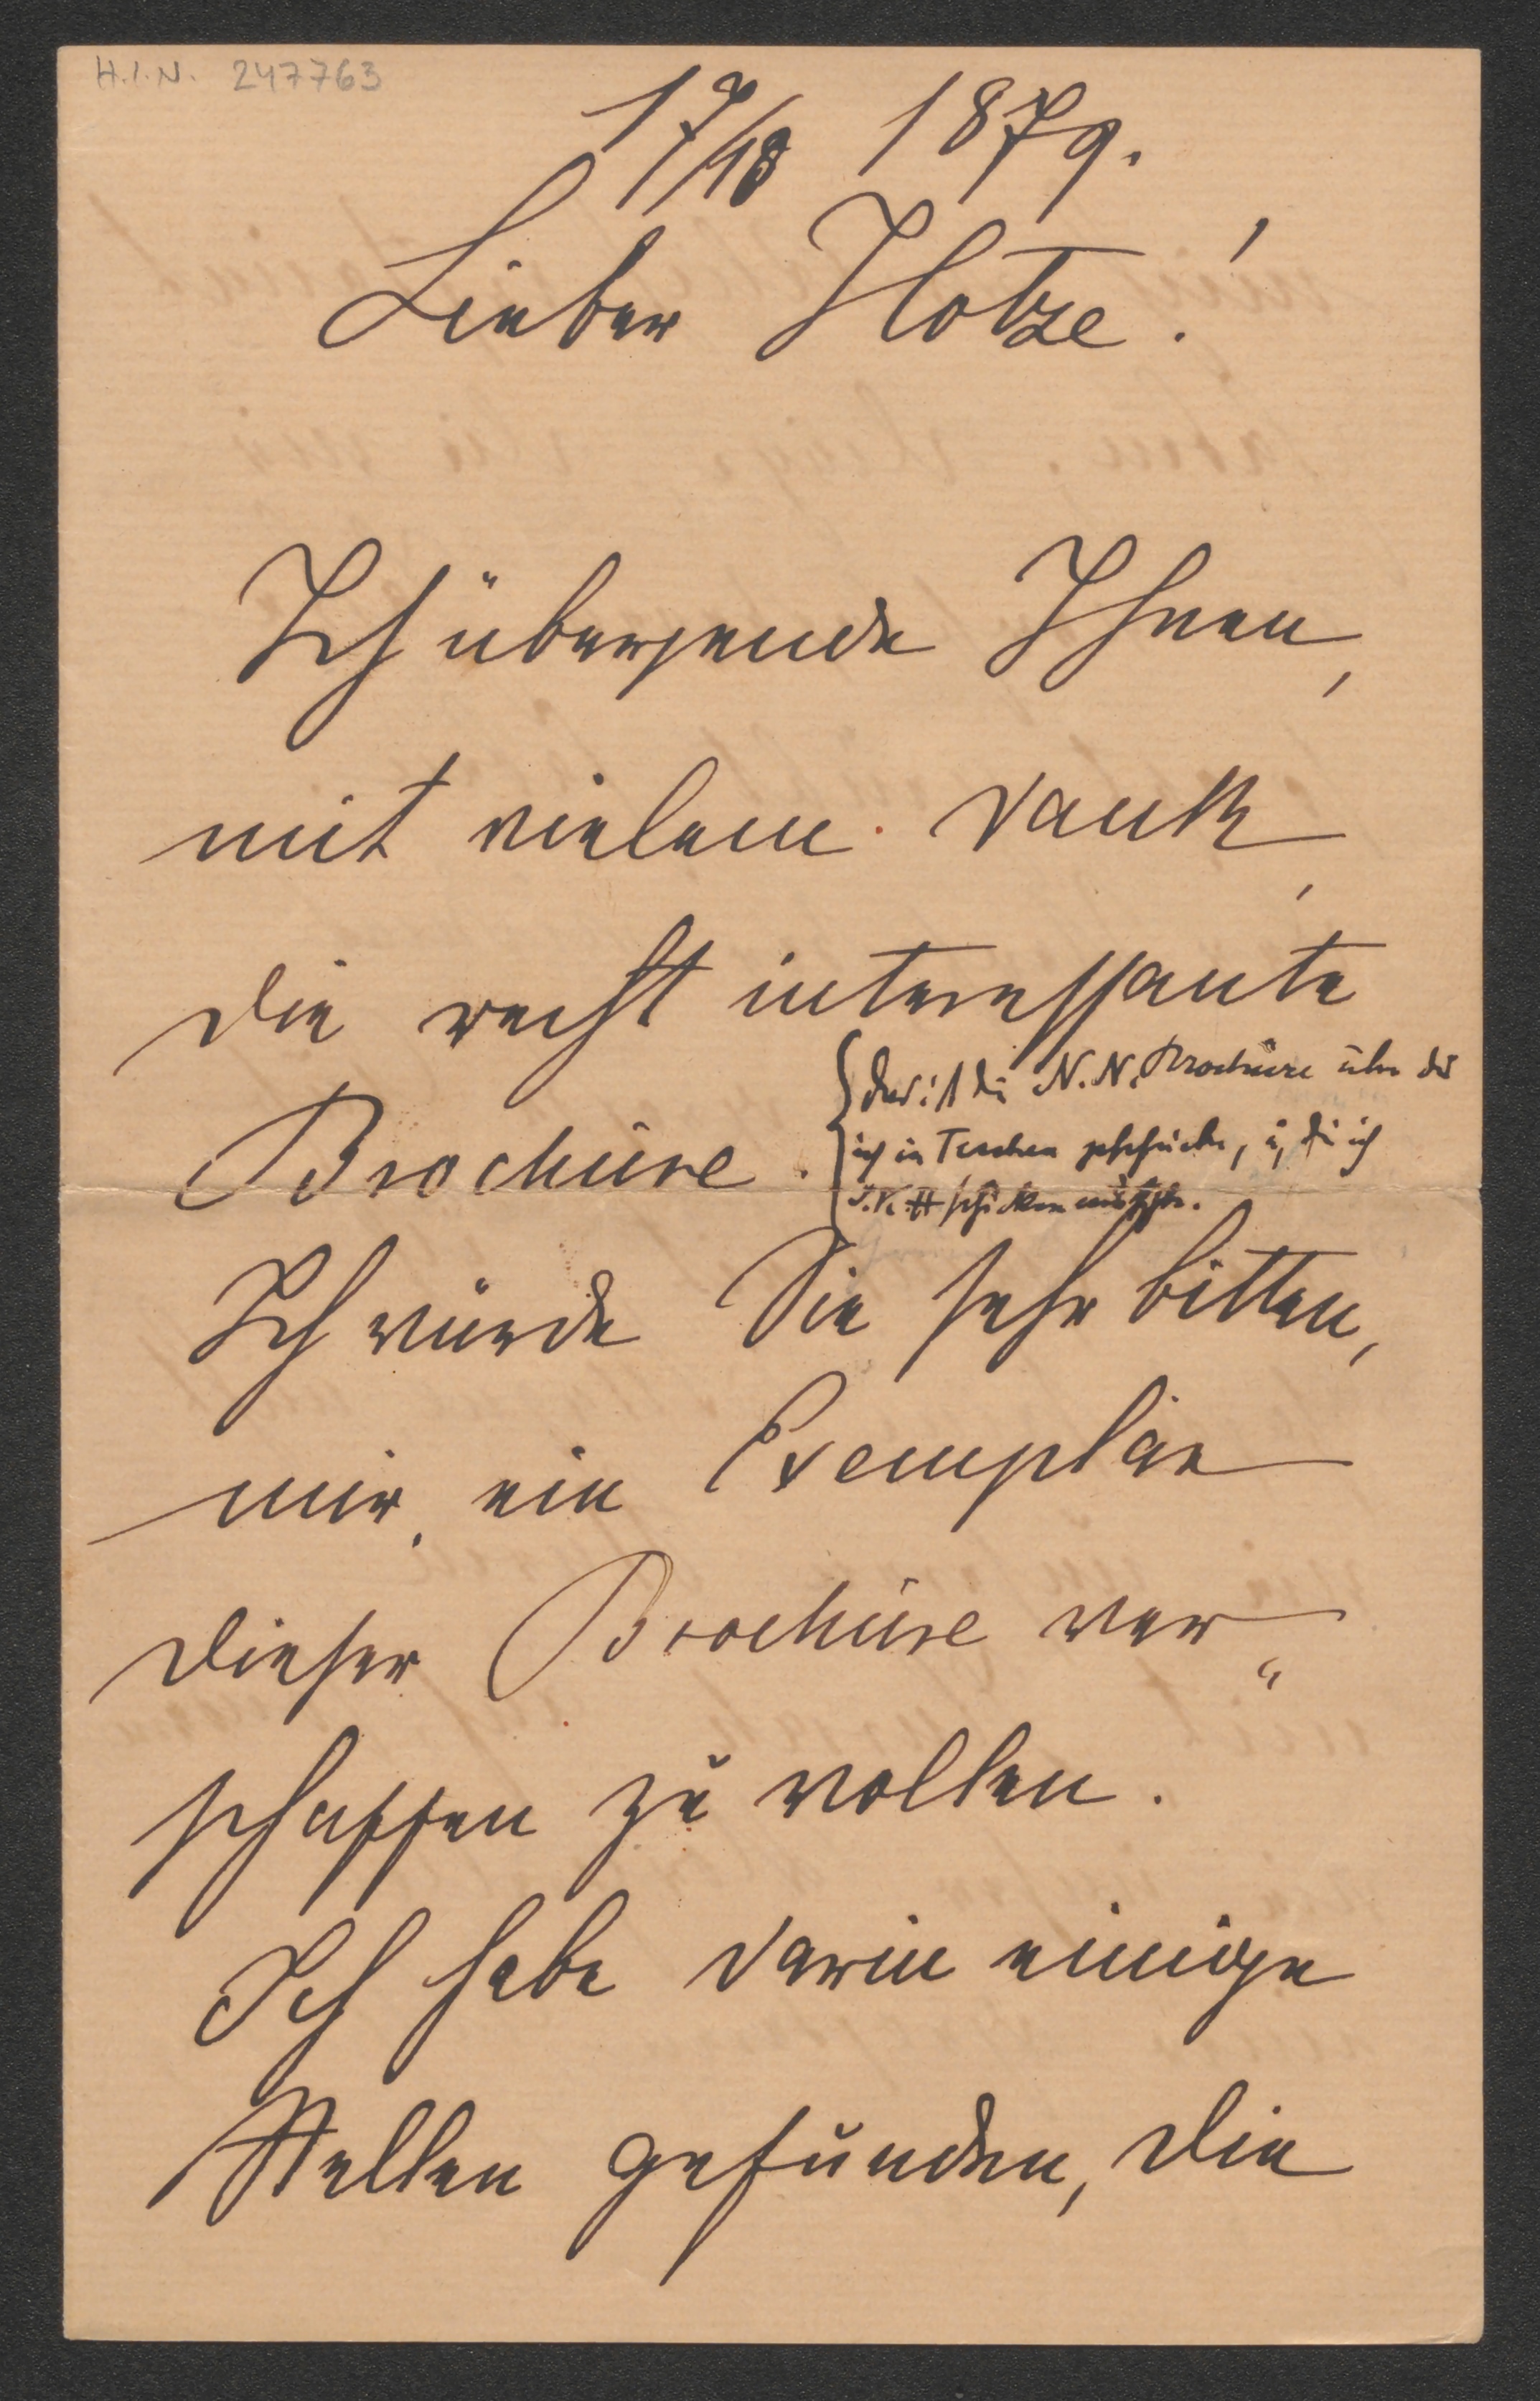 H.I.N. 247763
17/18 1879.
Lieber Klotze!
Ich übersende Ihnen,
mit vielem Dank,
die recht interessante
Brochüre.
{das ist die N.N. Brochüre über die
ich in Teschen geschrieben, u. die ich
schicken musste.
Ich würde Sie sehr bitten,
mir ein Exemplar
dieser Brochüre ver„
schaffen zu wollen.
Ich habe darin einige
Stellen gefunden, die